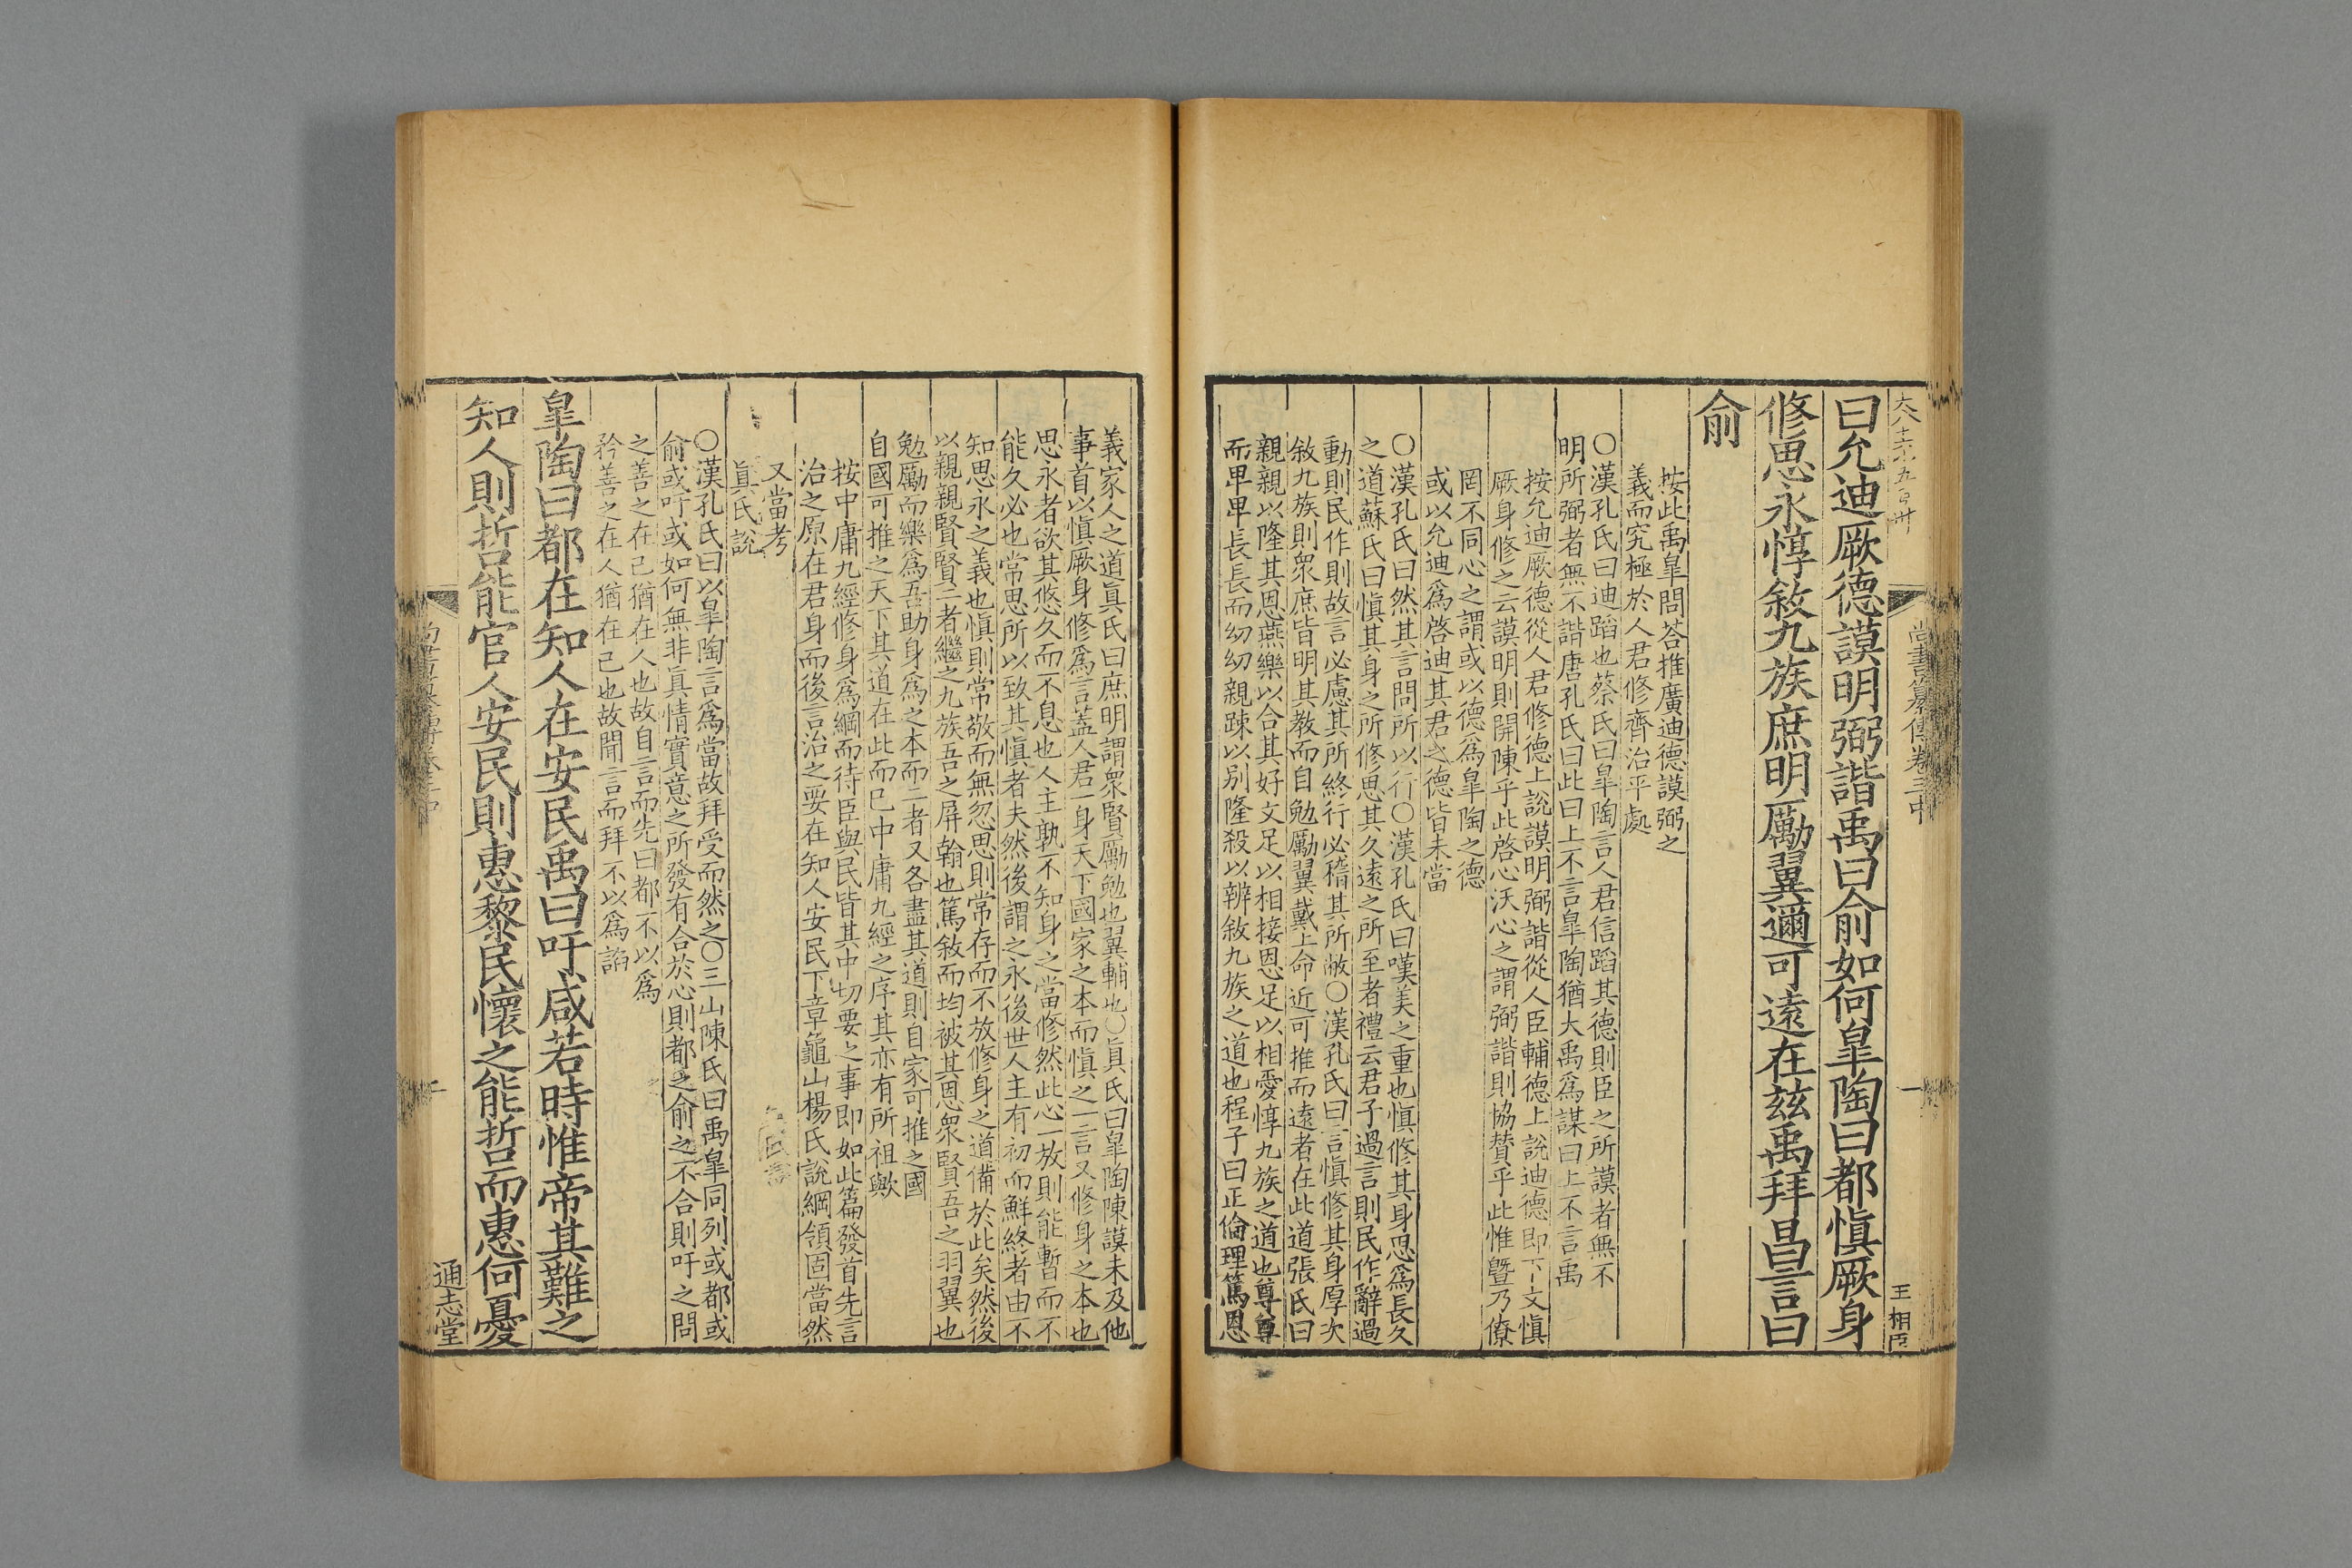 尚書纂傳卷三中
一
王相臣
曰允迪厥德謨明弼諧禹曰俞如何皐陶曰都愼厥身
修思永惇敘九族庶明厲翼邇可遠在兹禹拜昌言曰
俞
按此禹皐問荅推廣迪德謨弼之
義而究極於人君修齊治平處
〇漢孔氏曰迪蹈也蔡氏曰皐陶言人君信蹈其德則臣之所謨者無不
明所弼者無不諧唐孔氏曰此曰上不言皐陶猶大禹爲謀曰上不言禹
按允迪厥德從人君修德上說謨明弼諧從人臣輔德上說迪德即下文愼
厥身修之云謨明則開陳乎此啓心沃心之謂弼諧則協贊乎此惟曁乃僚
罔不同心之謂或以德爲皐陶之德
或以允迪爲啓迪其君之德皆未當
〇漢孔氏曰然其言問所以行〇漢孔氏曰嘆美之重也愼修其身思爲長久
之道蘇氏曰愼其身之所修思其久遠之所至者禮云君子過言則民作辭過
動則民作則故言必慮其所終行必稽其所敝〇漢孔氏曰言愼修其身厚次
敘九族則衆庶皆明其教而自勉勵翼戴上命近可推而遠者在此道張氏曰
親親以隆其恩燕樂以合其好文足以相接恩足以相愛惇九族之道也尊尊
而卑卑長長而幼幼親踈以别隆殺以辨敘九族之道也程子曰正倫理篤恩
義家人之道眞氏曰庶明謂衆賢勵勉也翼輔也〇眞氏曰皐陶陳謨未及他
事首以愼厥身修爲言蓋人君一身天下國家之本而愼之一言又修身之本也
思永者欲其悠久而不息也人主孰不知身之當修然此心一放則能暫而不
能久必也常思所以致其愼者夫然後謂之永後世人主有初而鮮終者由不
知思永之義也愼則常敬而無忽思則常存而不放修身之道備於此矣然後
以親親賢賢二者繼之九族吾之屏翰也篤敘而均被其恩衆賢吾之羽翼也
勉勵而樂爲吾助身爲之本而二者又各盡其道則自家可推之國
自國可推之天下其道在此而巳中庸九經之序其亦有所祖歟
按中庸九經修身爲綱而待臣與民皆其中切要之事即如此篇發首先言
治之原在君身而後言治之要在知人安民下章龜山楊氏說綱領固當然
又當考
眞氏說
〇漢孔氏曰以皐陶言爲當故拜受而然之〇三山陳氏曰禹皐同列或都或
俞或吁或如何無非眞情實意之所發有合於心則都之俞之不合則吁之問
之善之在己猶在人也故自言而先曰都不以爲
矜善之在人猶在己也故聞言而拜不以爲諂
皐陶曰都在知人在安民禹曰吁咸若時惟帝其難之
知人則哲能官人安民則惠黎民懷之能哲而惠何憂
通志堂